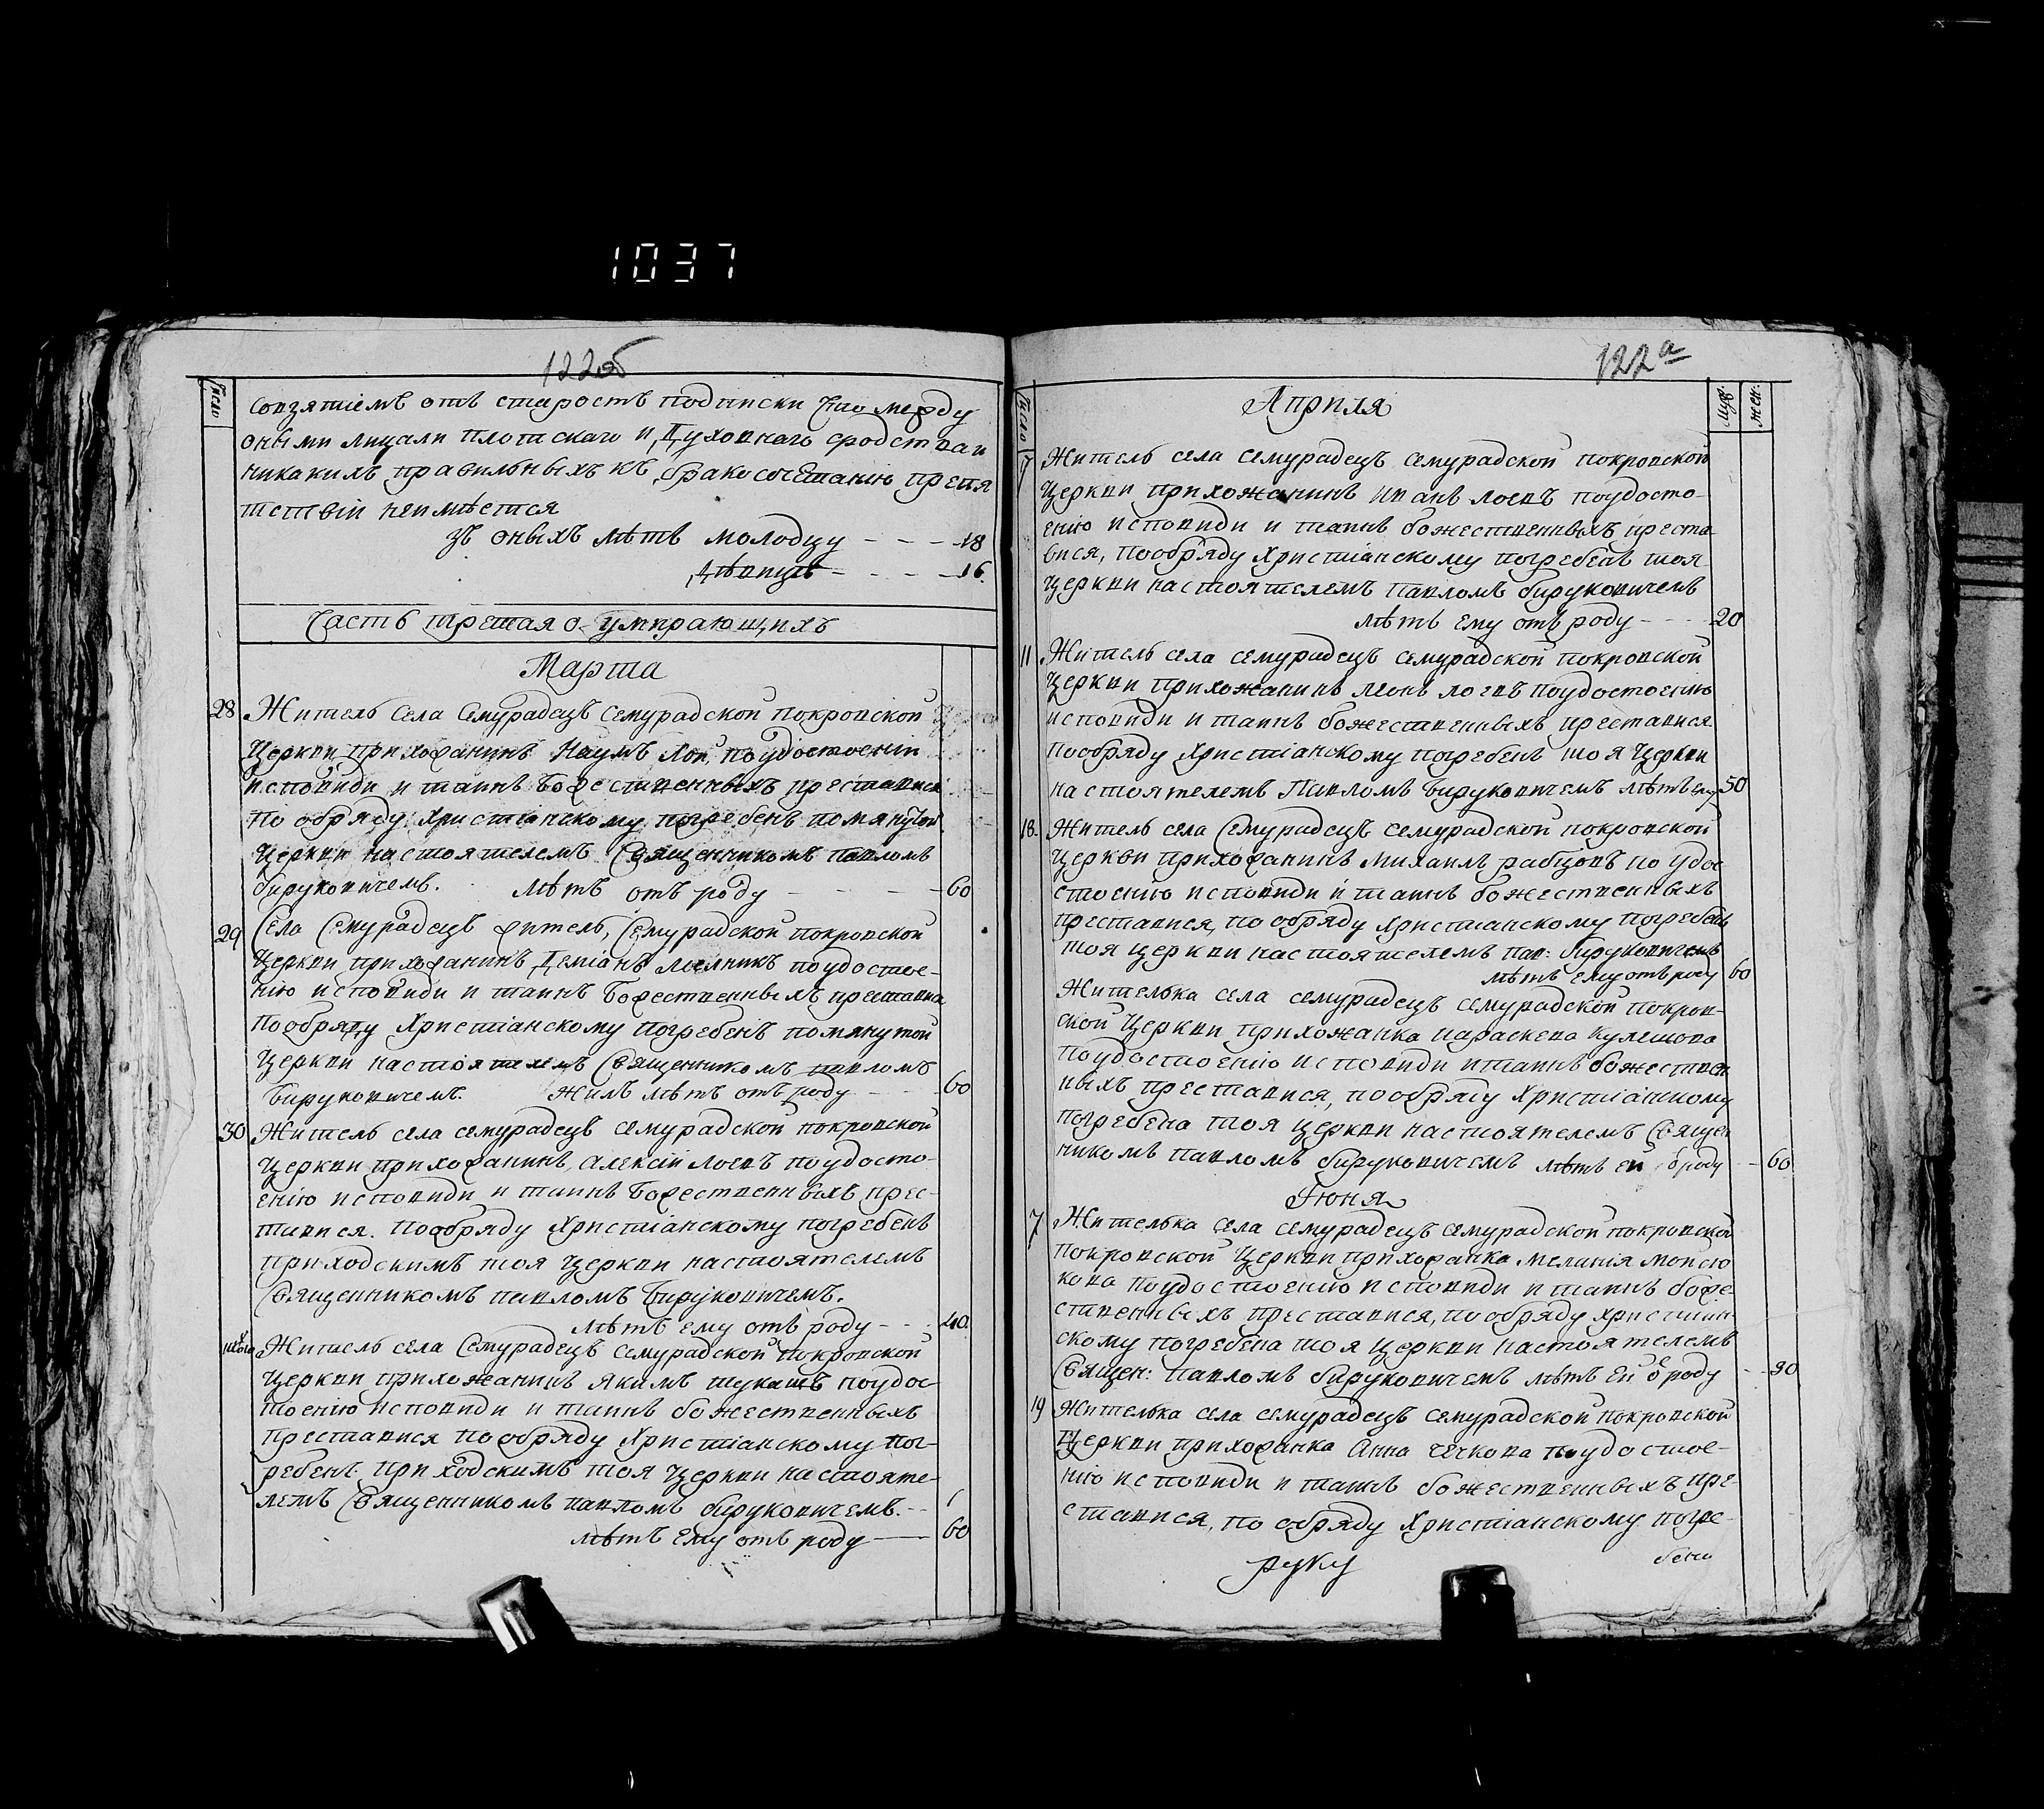 1037
122об
Число
совзятіемъ отъ старостъ подписки что между
оными лицами плотскаго и духовнаго сродства и
никакихъ правильныхъ къ бракосочетанію препя
тствій неимѣется
зъ оныхъ лѣтъ молодцу - - - 18
дѣвицѣ - - - - 16.
Часть третая о умирающихъ
Марта
28 Житель Села Семурадецъ Семурадской покровской
Церкви прихожанинъ Наумъ Лой, по удостоеніи
исповиди и таинъ Божественныхъ преставися
по обряду Християнскому погребенъ помянутой
Церкви настоятелемъ Священникомъ павломъ
бируковичемъ. лѣтъ отъ роду - - - - 60
29 Села Семурадецъ житель, Семурадской покровской
Церкви прихожанинъ Деміанъ поудостое-
нію исповиди и таинъ Божественныхъ преставися
пообряду Христіанскому погребенъ помянутой
Церкви настоятелемъ Священникомъ павломъ
бируковичемъ. Жилъ лѣтъ отъ роду - - - 60
30 Житель села семурадецъ семурадской покровской
Церкви прихожанинъ Алексій Лоевъ поудосто-
енію исповиди и таинъ Божественныхъ прес-
тавися. пообряду Христіанскому погребенъ
приходскимъ тоя Церкви настоятелемъ
Священникомъ павломъ Бируковичемъ.
лѣтъ ему отъ роду - - - 40.
Житель села Семурадецъ Семурадской покровской
Церкви прихожанинъ Якимъ поудос-
тоенію исповиди и таинъ божественныхъ
преставися по обряду Христіанскому пог-
ребенъ приходскимъ тоя Церкви настояте-
лемъ Священникомъ павломъ бируковичемъ. - -
лѣтъ Ему отъ роду - - 60
122а
Число Апрѣля муж. жен.
Житель села семурадецъ семурадской покровской
Церкви прихожанинъ Иванъ Лоевъ поудосто-
енію исповиди и таинъ божественныхъ преста-
вися, пообряду Христіанскому погребенъ тоя
Церкви настоятелемъ павломъ бируковичемъ
лѣтъ ему отъ роду - - - 20
11 Житель села семурадецъ семурадской покровской
Церкви прихожанинъ Леонъ Лоевъ поудостоенію
исповиди и таинъ божественныхъ преставися
пообряду Христіанскому погребенъ тоя Церкви
настоятелемъ Павломъ Бируковичемъ лѣтъ ему 50
18. Житель села Семурадецъ семурадской покровской
Церкви прихожанинъ Михаилъ рабцовъ по удос
стоенію исповиди и таинъ божественныхъ
преставися, по обряду Христіанскому погребенъ
тоя церкви настоятелемъ пав: бируковичемъ
лѣтъ Ему отъ роду 60
Жителька села семурадецъ семурадской покров-
ской Церкви прихожанка параскева Кулешова
поудостоенію исповиди и таинъ божествен
ныхъ преставися, пообряду Христіанскому
погребена тоя церкви настоятелемъ Священ
никомъ павломъ бируковичемъ лѣтъ ей о роду - - 60
Іюня
7 Жителька села семурадецъ семурадской покровской
покровской Церкви прихожанка меланія
поудостоенію исповиди и таинъ боже
ственныхъ преставися, пообряду Христіан-
скому погребена тоя Церкви настоятелемъ
Священ: павломъ бируковичемъ лѣтъ Ей о роду - - 30
19 Жителька села семурадецъ семурадской покровской
Церкви прихожанка Анна чечкова поудостое-
нію исповиди и таинъ божественныхъ пре-
ставися, по обряду Христіанскому погре-
бена
руку